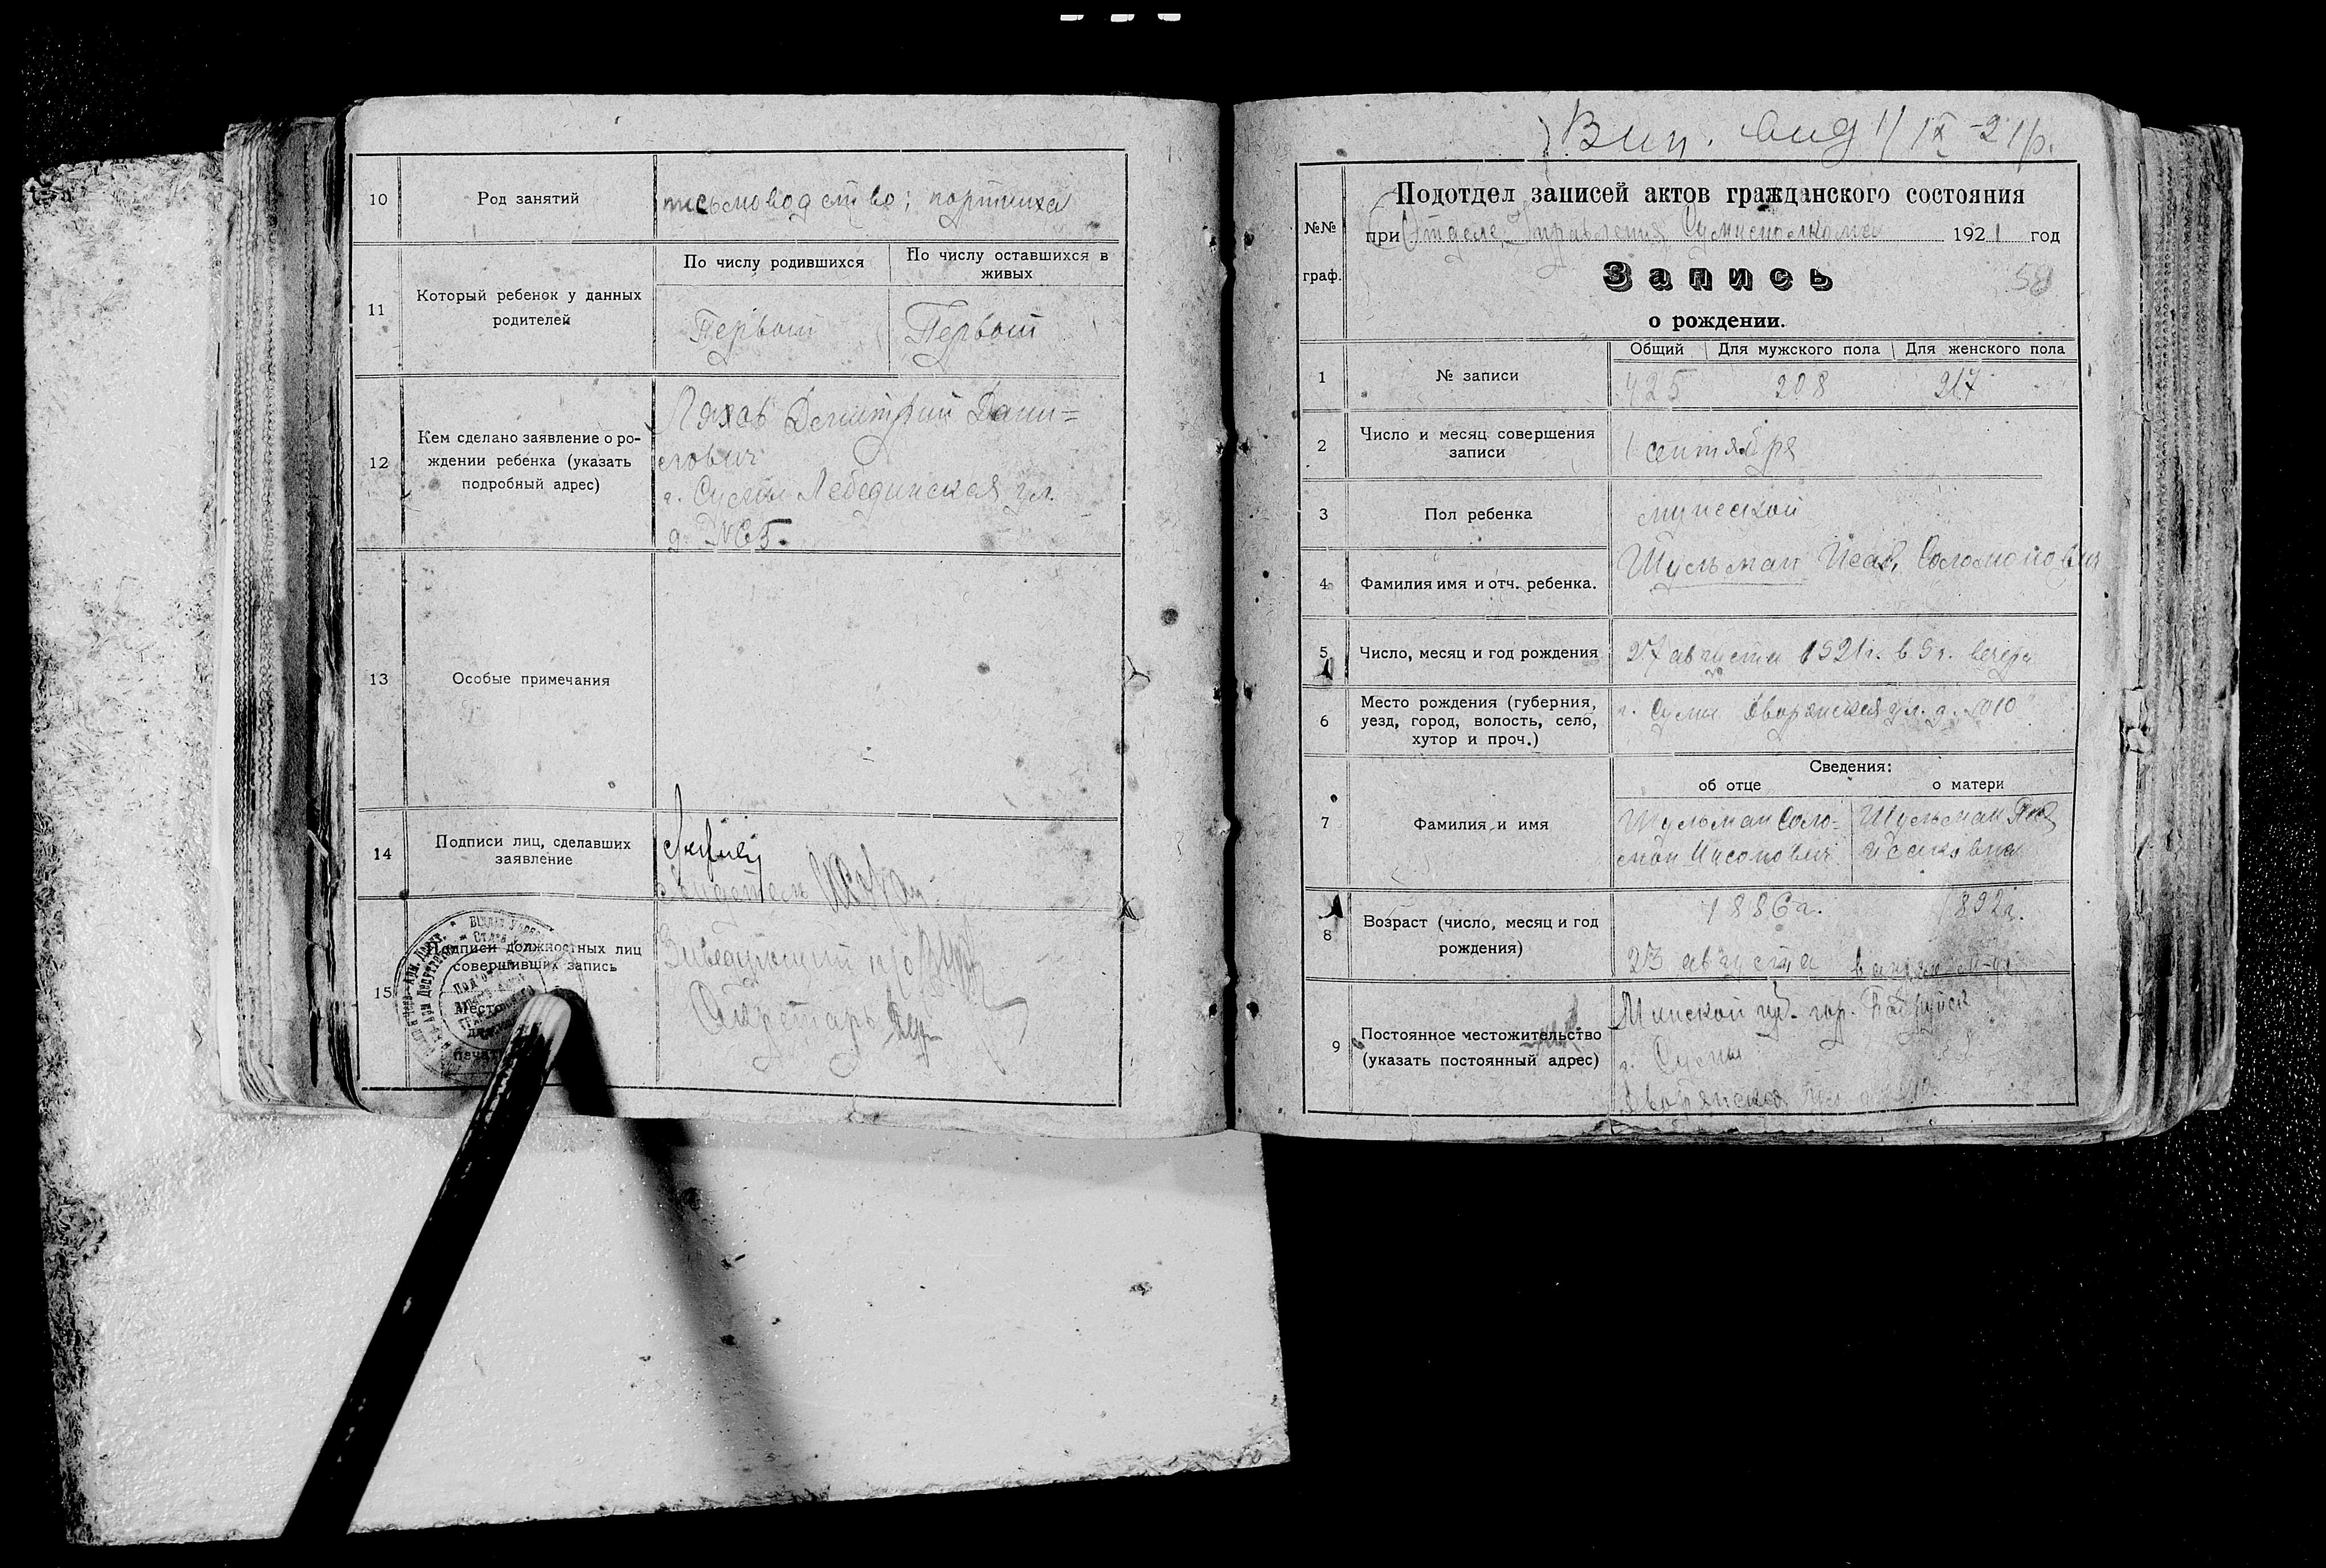 10
Род занятий
письмоводство; портниха
11
Который ребенок у данных
родителей
По числу родившихся
По числу оставшихся в
живых
Первый
Первый
12
Кем сделано заявление о ро-
ждении ребенка (указать
подробный адрес)
Ляхов Дмитрий Дани-
лович
г. Сумы Лебединская ул.
д. №65.
13
Особые примечания
14
Подписи лиц, сделавших
заявление
свидетель
15
Подписи должностных лиц
совершивших запись
Место
печати
Заведующий
Секретарь
Вип. вид 1/IX-21р.
№№
граф.
Подотдел записей актов гражданского состояния
при Отделе Управления Сумисполкома 1921 год
Запись
58
о рождении.
Общий
Для мужского пола
Для женского пола
1
№ записи
425
208
217
2
Число и месяц совершения
записи
1 сентября
3
Пол ребенка
мужской
4
Фамилия имя и отч. ребенка.
Шульман Исай Соломонович
5
Число, месяц и год рождения
27 августа 1921г. в 9ч. вечера
6
Место рождения (губерния,
уезд, город, волость, село,
хутор и проч.)
г. Сумы Дворянская ул. д. №10
Сведения:
об отце
о матери
7
Фамилия и имя
Шульман Соло-
мон
Шульман
Исаковна
8
Возраст (число, месяц и год
рождения)
1886г.
23 августа
1892г.
9
Постоянное местожительство
(указать постоянный адрес)
Минской губ. гор. Бобруйск
г. Сумы
Дворянская ул.